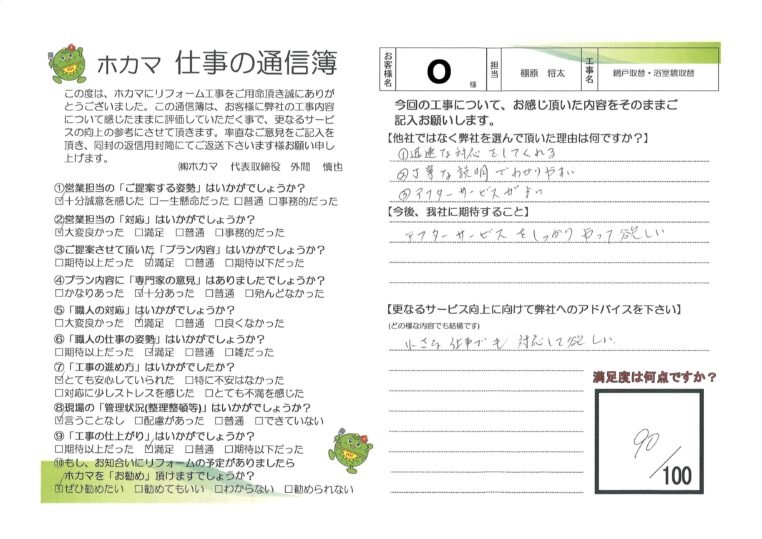 ホカマ 仕事の通信簿
この度は、ホカマにリフォーム工事をご用命頂き誠にありが
とうございました。この通信簿は、お客様に弊社の工事内容
について感じたままに評価していただく事で、更なるサービ
スの向上の参考にさせて頂きます。率直なご意見をご記入を
頂き、同封の返信用封筒にてご返送下さいます様お願い申し
上げます。
㈱ホカマ 代表取締役 外間 慎也
①営業担当の「ご提案する姿勢」はいかがでしょうか?
☑十分誠意を感じた □一生懸命だった □普通 □事務的だった
②営業担当の「対応」はいかがでしょうか?
☑大変良かった □満足 □普通 □事務的だった
③ご提案させて頂いた「プラン内容」はいかがでしょうか?
□期待以上だった ☑満足 □普通 □期待以下だった
④プラン内容に「専門家の意見」はありましたでしょうか?
□かなりあった ☑十分あった □普通 □殆んどなかった
⑤「職人の対応」はいかがでしょうか?
□大変良かった ☑満足 □普通 □良くなかった
⑥「職人の仕事の姿勢」はいかがでしょうか?
□期待以上だった ☑満足 □普通 □雑だった
⑦「工事の進め方」はいかがでしたか?
☑とても安心していられた □特に不安はなかった
□対応に少しストレスを感じた □とても不満を感じた
⑧現場の「管理状況(整理整頓等)」はいかがでしょうか?
☑言うことなし □配慮があった □普通 □できていない
⑨「工事の仕上がり」はいかがでしょうか?
□期待以上だった ☑満足 □普通 □期待以下だった
⑩もし、お知合いにリフォームの予定がありましたら
ホカマを「お勧め」頂けますでしょうか?
☑ぜひ勧めたい □勧めてもいい □わからない □勧められない
お客様名 O 様 担当 棚原 将太 工事名 網戸取替・浴室鏡取替
今回の工事について、お感じ頂いた内容をそのままご
記入お願いします。
【他社ではなく弊社を選んで頂いた理由は何ですか?】
①迅速な対応をしてくれる
②丁寧な説明でわかりやすい
③アフターサービスがよい
【今後、我社に期待すること】
アフターサービスをしっかりやって欲しい
【更なるサービス向上に向けて弊社へのアドバイスを下さい】
(どの様な内容でも結構です)
小さな仕事でも対応して欲しい。
満足度は何点ですか?
90/100